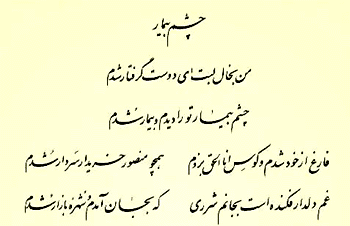 چشم بیمار
من بخال لبت ای دوست گرفتار شدم
چشم بیمار تو را دیدم و بیمار شدم
فارغ از خود شدم و کوس انا الحق بزدم همچو منصور خریدار سر دار شدم
غم دلدار فکنده است بجانم شرری که بجان آمدم شهره بازار شدم